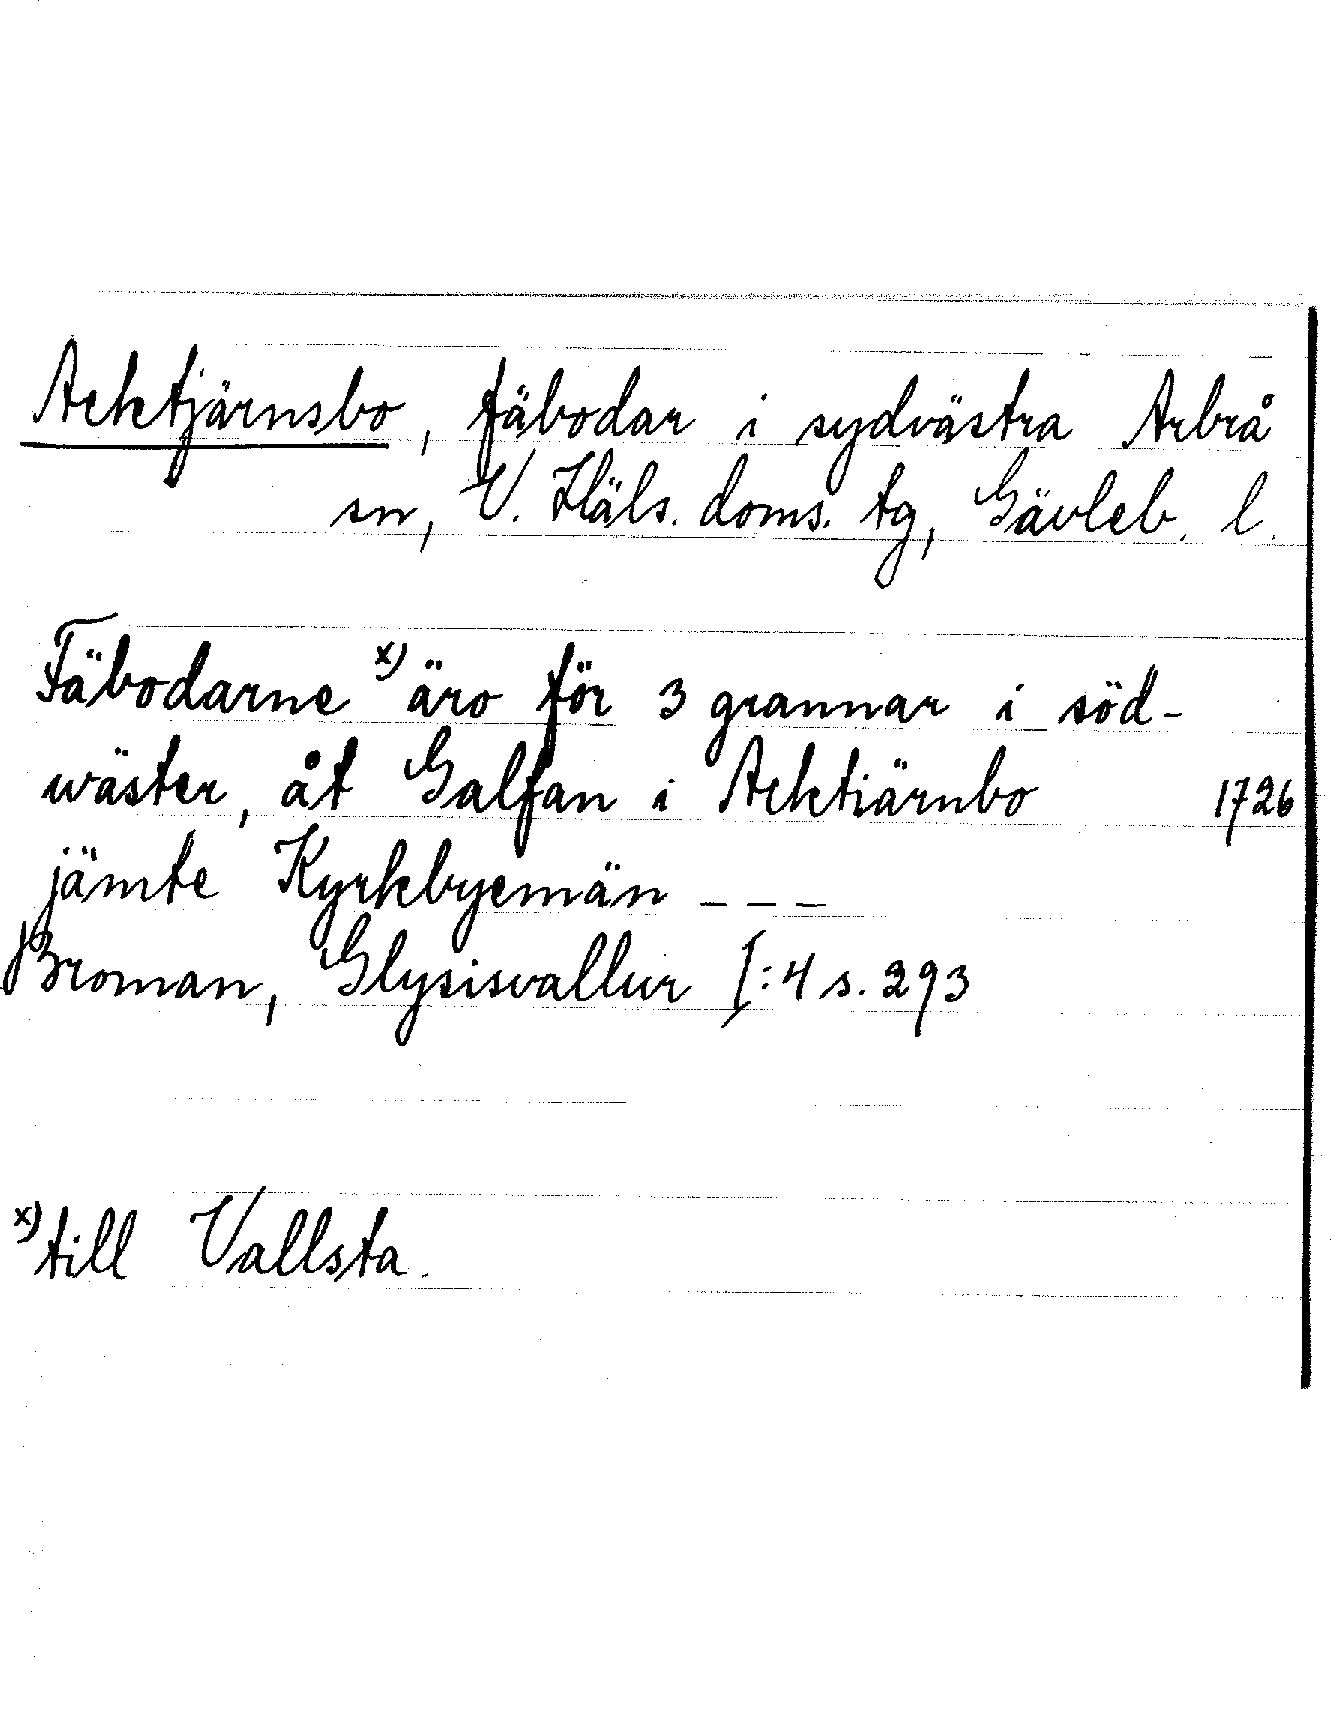 Acktjärnsbo, fäbodar i sydvästra Arbrå
sn, V. Häls. doms. tg, Gävleb. l.
Fäbodarne x) äro för 3 grannar i söd-
wäster, åt Galfan i Acktiärnbo 1726
jämte Kyrkbyemän - - -
Broman, Glysisvallur I:4 s. 293
x) till Vallsta.